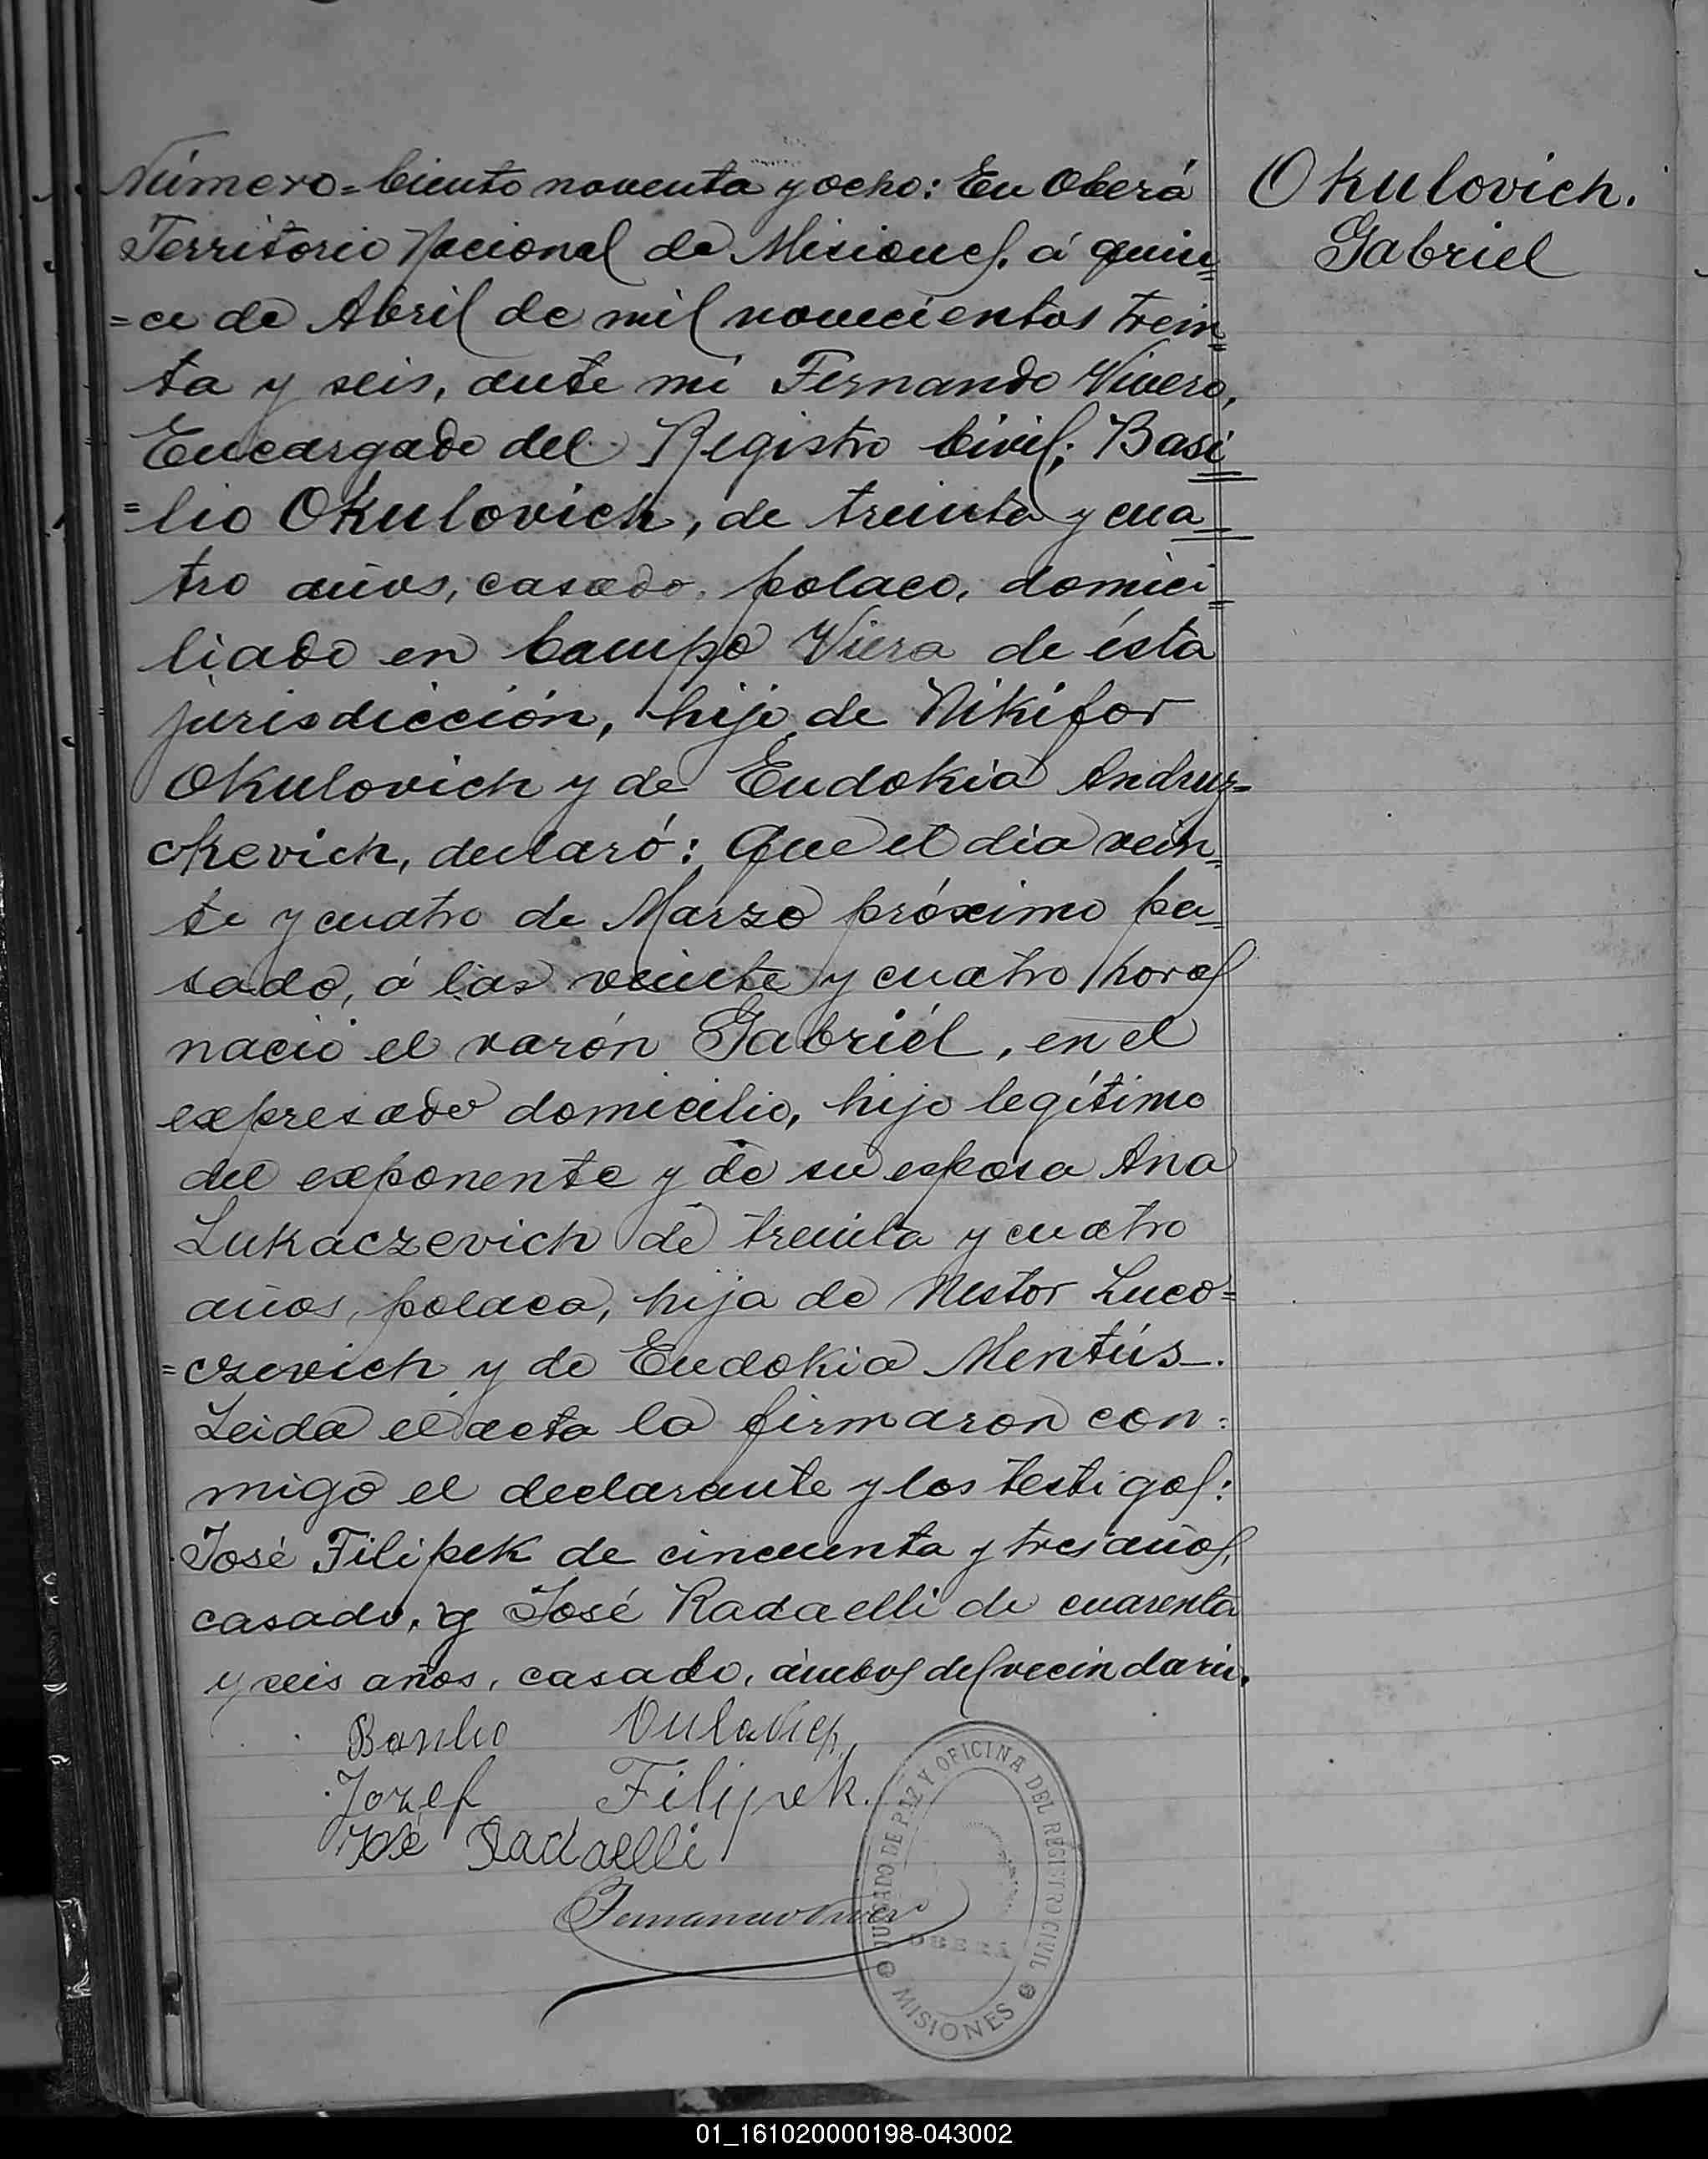 Número = Ciento noventa y ocho: En Oberá
Territorio Nacional de Misiones, á quin=
=ce de Abril de mil novecientos trein=
ta y seis, ante mí Fernando Vivero,
Encargado del Registro Civil; Basi=
=lio Okulovich, de treinta y cua=
tro años, casado, polaco, domici=
liado en Campo Viera de ésta
jurisdicción, hijo de Nikifor
Okulovich y de Eudokia Andruz=
ckevich, declaró: Que el día vein=
te y cuatro de Marzo próximo pa=
sado, á las veinte y cuatro horas
nació el varón Gabriél, en el
expresado domicilio, hijo legítimo
del exponente y de su esposa Ana
Lukaczevich de treinta y cuatro
años, polaca, hija de Nestor Luco=
=czevich y de Eudokia Mentús.
Leida el acta la firmaron con=
migo el declarante y los testigos:
José Filipek de cincuenta y tres años,
casado, y José Radaelli de cuarenta
y seis años, casado, ámbos del vecindario.
Okulovich.
Gabriel
Jozef Filipek.
José Radaelli
JUZGADO DE PAZ Y OFICINA DEL REGISTRO CIVIL
OBERÁ
MISIONES
01_161020000198-043002